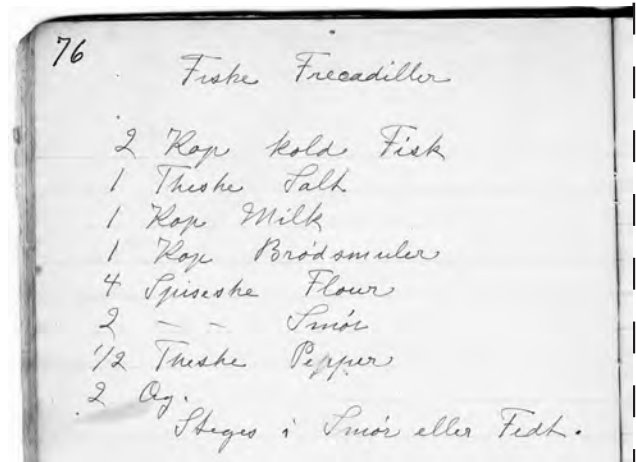 76
Fiske Frecadiller
2 Kop kold Fisk
1 Theske Salt
1 Kop Milk
1 Kop Brödsmuler
4 Spiseske Flour
2 — — Smör
1/2 Theske Pepper
2 Og.
Steges i Smör eller Fedt.